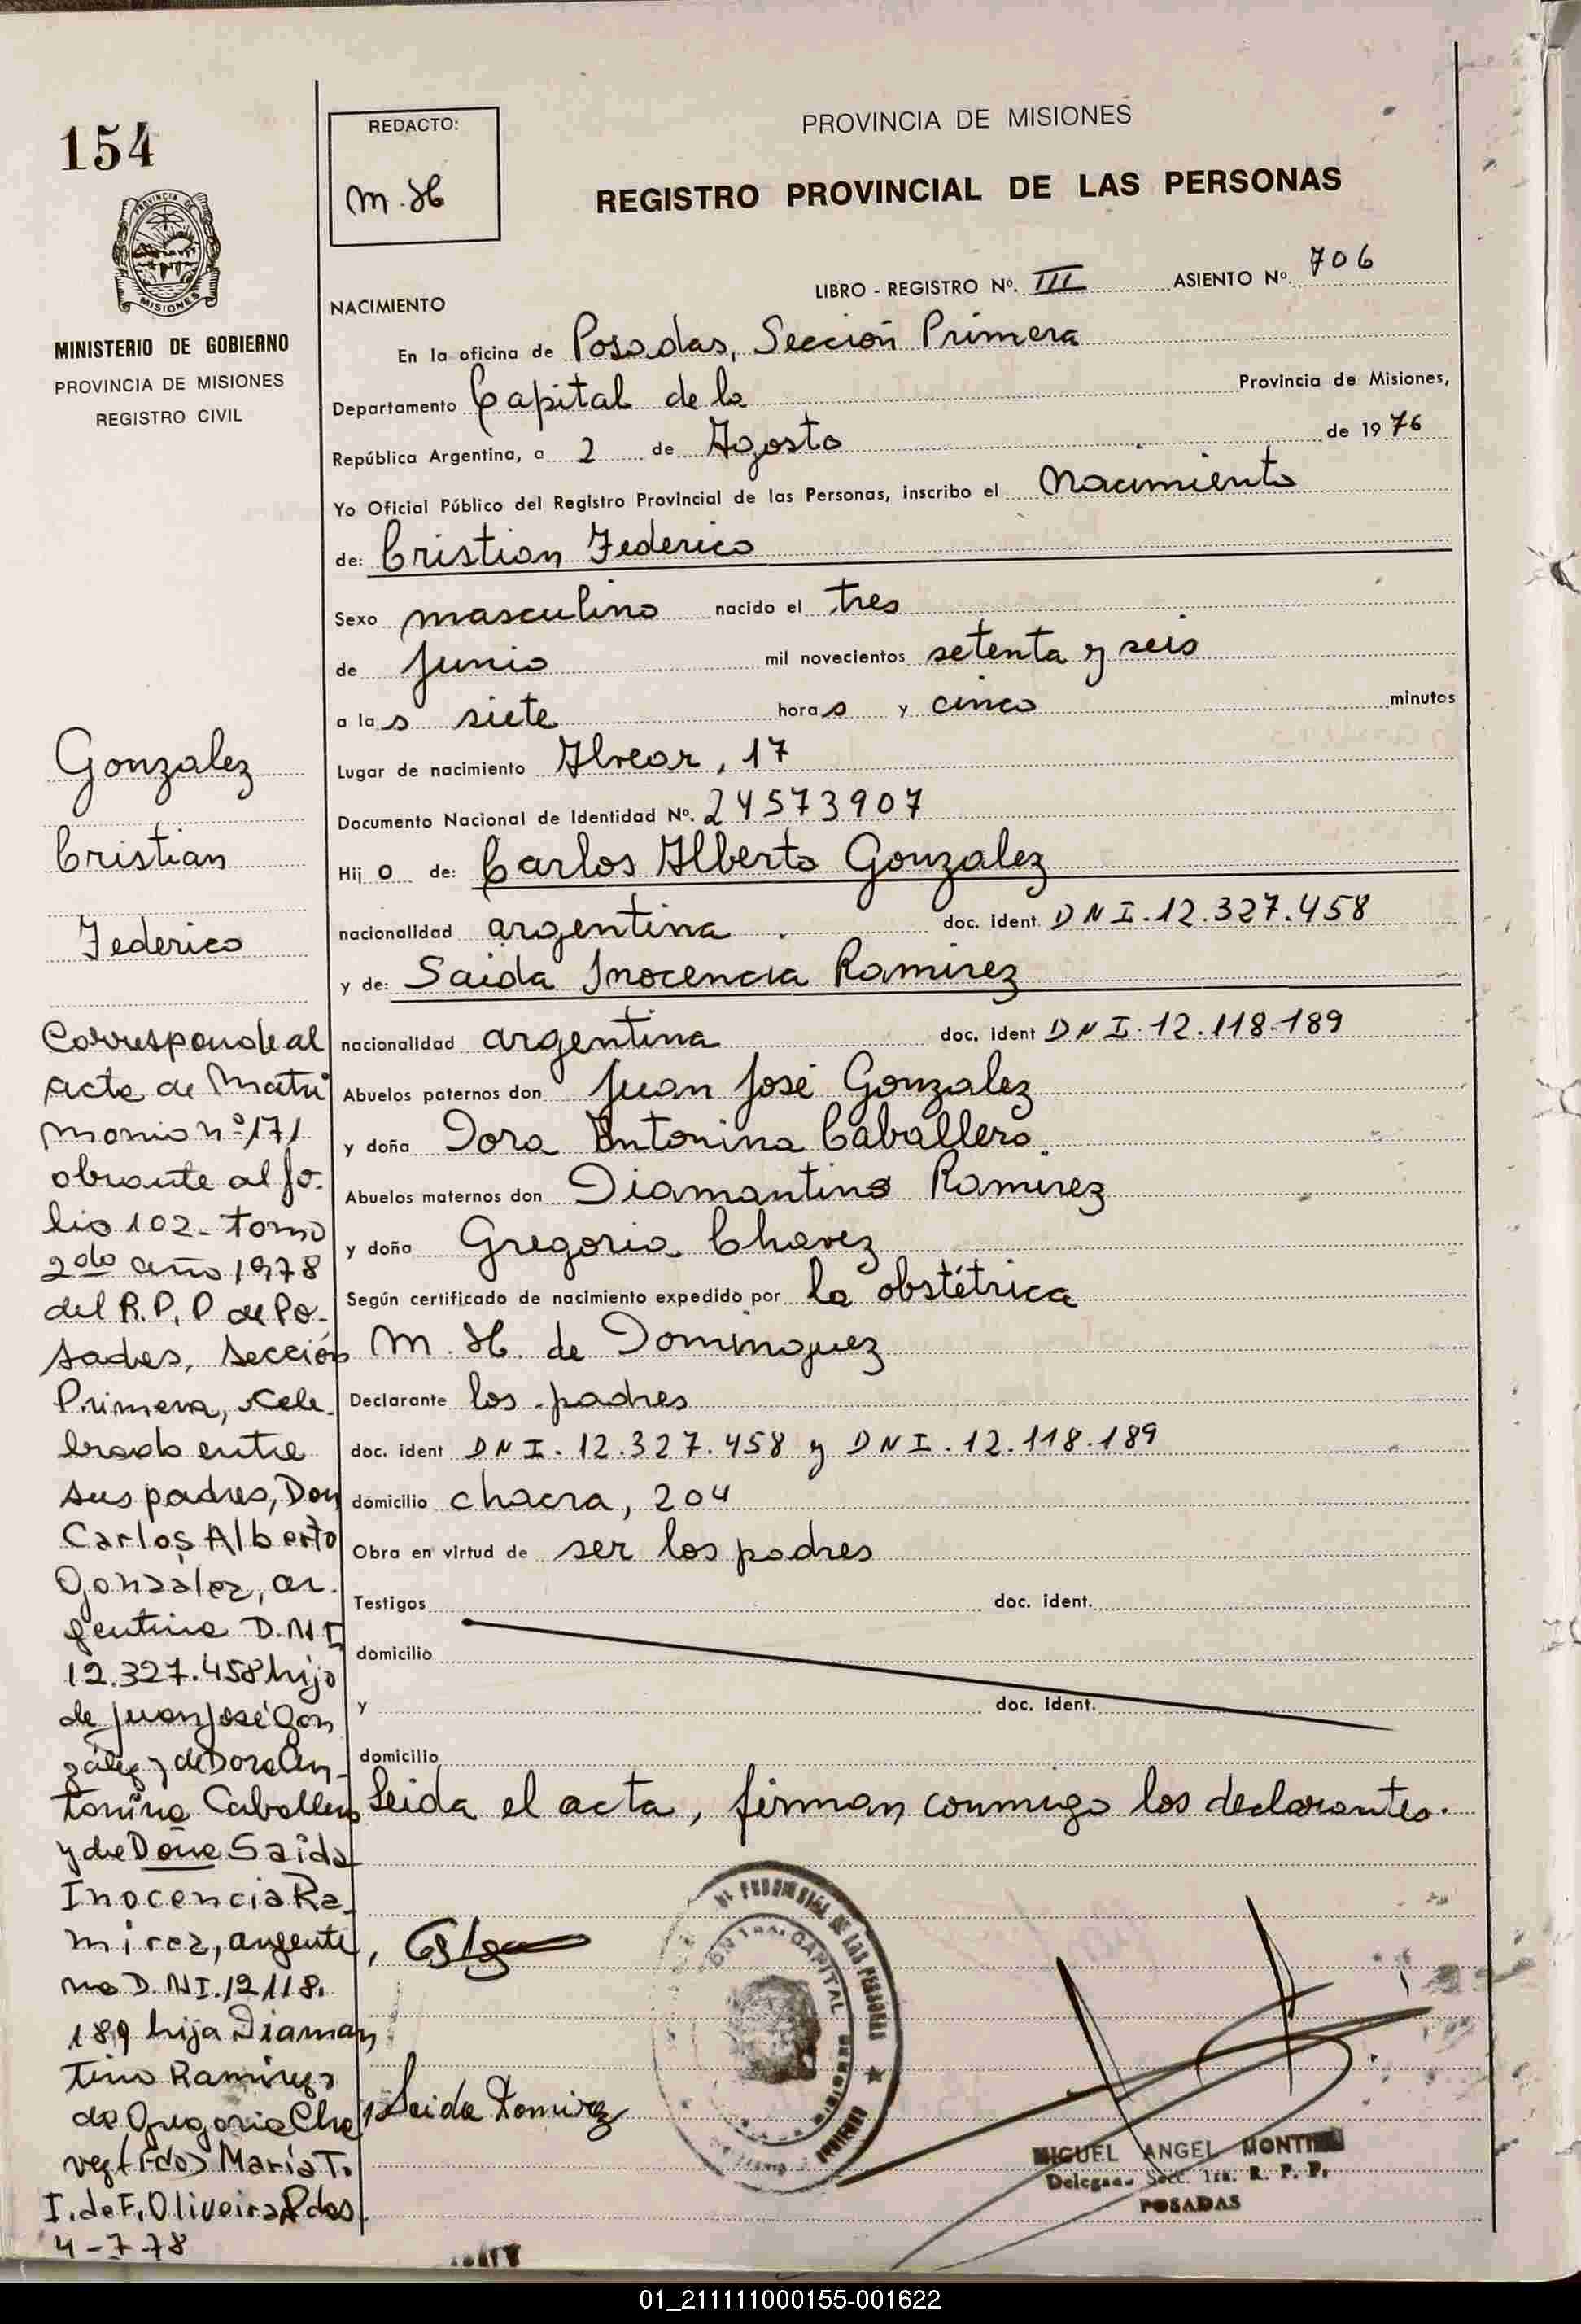 154
PROVINCIA DE
MISIONES
MINISTERIO DE GOBIERNO
PROVINCIA DE MISIONES
REGISTRO CIVIL
REDACTO:
M. H
PROVINCIA DE MISIONES
REGISTRO PROVINCIAL DE LAS PERSONAS
LIBRO - REGISTRO Nº. III ASIENTO Nº. 706
NACIMIENTO
En la oficina de Posadas, Sección Primera
Departamento Capital de la Provincia de Misiones,
República Argentina, a 2 de Agosto de 1976
Yo Oficial Público del Registro Provincial de las Personas, inscribo el Nacimiento
de: Cristian Federico
Sexo masculino nacido el tres
de Junio mil novecientos setenta y seis
a las siete horas y cinco minutos
Lugar de nacimiento Alvear, 17
Documento Nacional de Identidad Nº. 24573907
Hijo de: Carlos Alberto Gonzalez
nacionalidad argentina doc. ident. DNI. 12.327.458
y de: Saida Inocencia Ramirez
nacionalidad argentina doc. ident DNI. 12.118.189
Abuelos paternos don Juan José Gonzalez
y doña Dora Antonina Caballero.
Abuelos maternos don Diamantino Ramirez
y doña Gregoria Chavez
Según certificado de nacimiento expedido por la obstétrica
M. H. de Dominguez
Declarante los padres
doc. ident DNI. 12.327.458 y DNI. 12.118.189
domicilio chacra, 204
Obra en virtud de ser los padres
Testigos doc. ident.
domicilio
y doc. ident.
domicilio
Leida el acta, firman conmigo los declarantes.
Saida Ramirez
CAPITAL
MIGUEL ANGEL
Delegado Secc. 1ra. R. P. P.
POSADAS
Gonzalez
Cristian
Federico
Corresponde al
acta de Matri
monio nº 171
obrante al fo-
lio 102- tomo
2do año 1978
del R.P.P de Po-
sadas, Sección
Primera, cele-
brado entre
sus padres, Don
Carlos Alberto
González, ar-
gentino D.N.I
12.327.458 hijo
de Juan José Gon
zález y de Dora An-
tonina Caballero
y de Doña Saida
Inocencia Ra-
mirez, argenti,
na D.NI. 12118.
189 hija Diaman
tino Ramirez y
de Gregoria Cha
vez (Fdo) María T.
I. de F. Oliveira Pdas
4-7-78
01_211111000155-001622